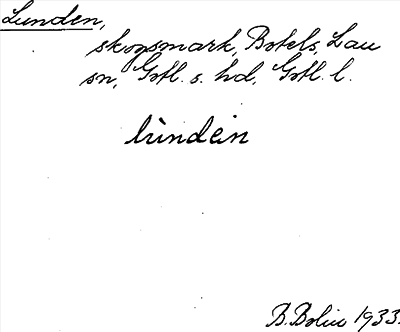 Lunden,
skogsmark, Botels, Lau
sn, Gotl. s. hd, Gotl. l.
lùndein
B. Bolin 1933.